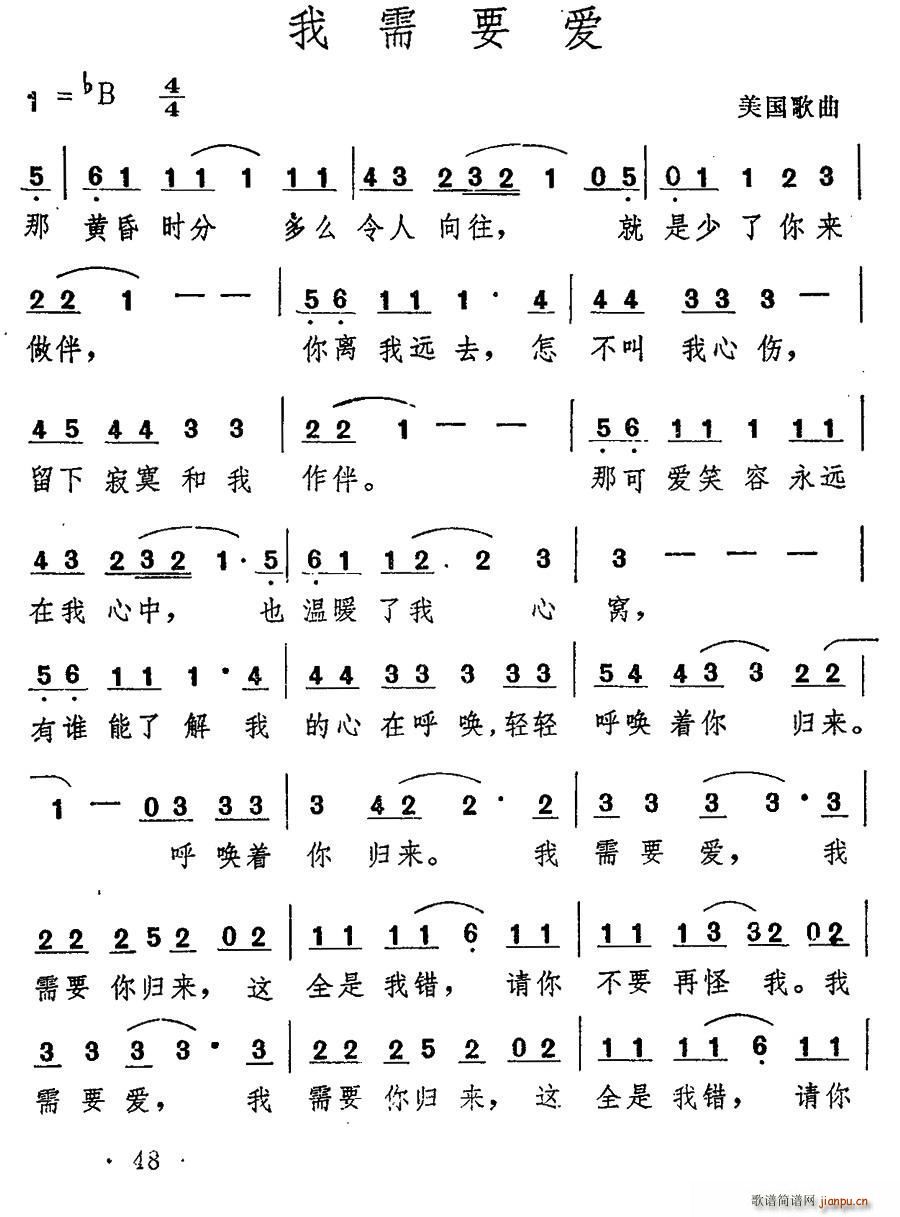 我需要爱
1 = ♭B 4/4 美国歌曲
5 | 6 1 1 1 1 1 1 | 4 3 2 3 2 1 0 5 | 0 1 1 2 3 |
那 黄昏 时分 多么 令人 向往， 就 是少 了 你 来
2 2 1 — — | 5 6 1 1 1 · 4 | 4 4 3 3 3 — |
做伴， 你离 我远 去， 怎 不叫 我心 伤，
4 5 4 4 3 3 | 2 2 1 — — | 5 6 1 1 1 1 1 |
留下 寂寞 和 我 作伴。 那可 爱笑 容 永远
4 3 2 3 2 1 · 5 | 6 1 1 2 · 2 3 | 3 — — — |
在我 心中， 也 温暖 了我 心 窝，
5 6 1 1 1 · 4 | 4 4 3 3 3 3 3 | 5 4 4 3 3 2 2 |
有谁 能了 解 我 的心 在呼 唤，轻轻 呼唤 着你 归来。
1 — 0 3 3 3 | 3 4 2 2 · 2 | 3 3 3 3 · 3 |
呼 唤着 你 归来。 我 需 要 爱， 我
2 2 2 5 2 0 2 | 1 1 1 1 6 1 1 | 1 1 1 3 3 2 0 2 |
需要 你归来， 这 全是 我错， 请你 不要 再怪 我。我
3 3 3 3 · 3 | 2 2 2 5 2 0 2 | 1 1 1 1 6 1 1 |
需 要 爱， 我 需要 你归 来， 这 全是 我错， 请你
· 48 ·
歌谱简谱网 jianpu.cn